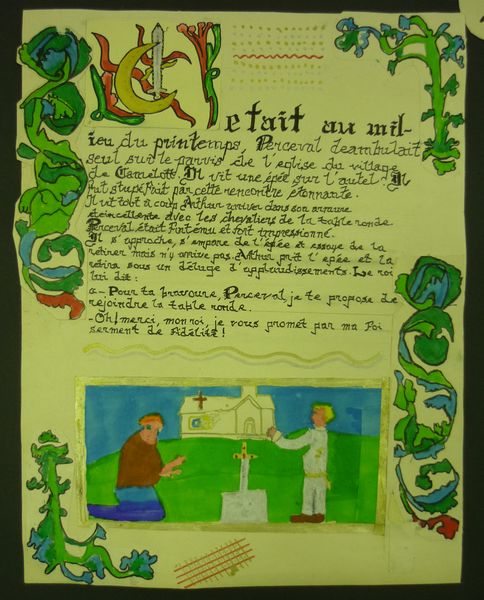 C'était au mil-
ieu du printemps, Perceval déambulait
seul sur le parvis de l'église du village
de Camelott. Il vit une épée sur l'autel. Il
fut stupéfait par cette rencontre étonnante.
Il vit tout à coup Arthur arriver dans son armure
étincellente avec les chevaliers de la table ronde.
Perceval était fort ému et fort impressionné.
Il s'approche, s'empare de l'épée et essaye de la
retirer mais n'y arrive pas. Arthur prit l'épée et la
retira sous un déluge d'applaudissements. Le roi
lui dit :
«- Pour ta bravoure, Perceval, je te propose de
rejoindre la table ronde.
-Oh! merci, mon roi, je vous promet par ma foi
serment de fidélité !